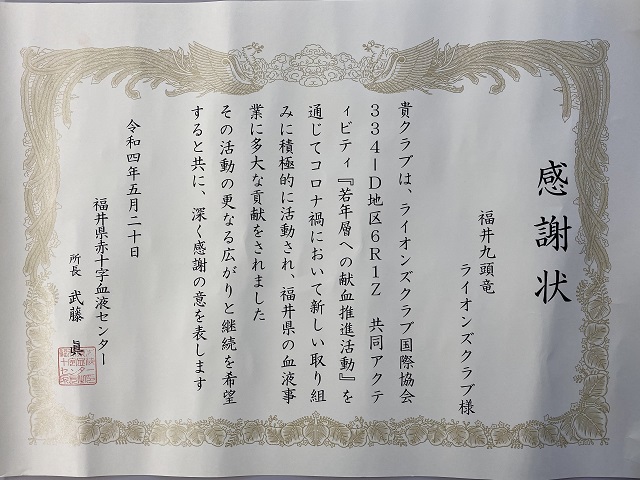 感謝状
福井九頭竜
ライオンズクラブ様
貴クラブは、ライオンズクラブ国際協会
334−D地区6R1Z　共同アクテ
ィビティ『若年層への献血推進活動』を
通じてコロナ禍において新しい取り組
みに積極的に活動され、福井県の血液事
業に多大な貢献をされました
その活動の更なる広がりと継続を希望
すると共に、深く感謝の意を表します
令和四年五月二十日
福井県赤十字血液センター
所長　武藤　眞